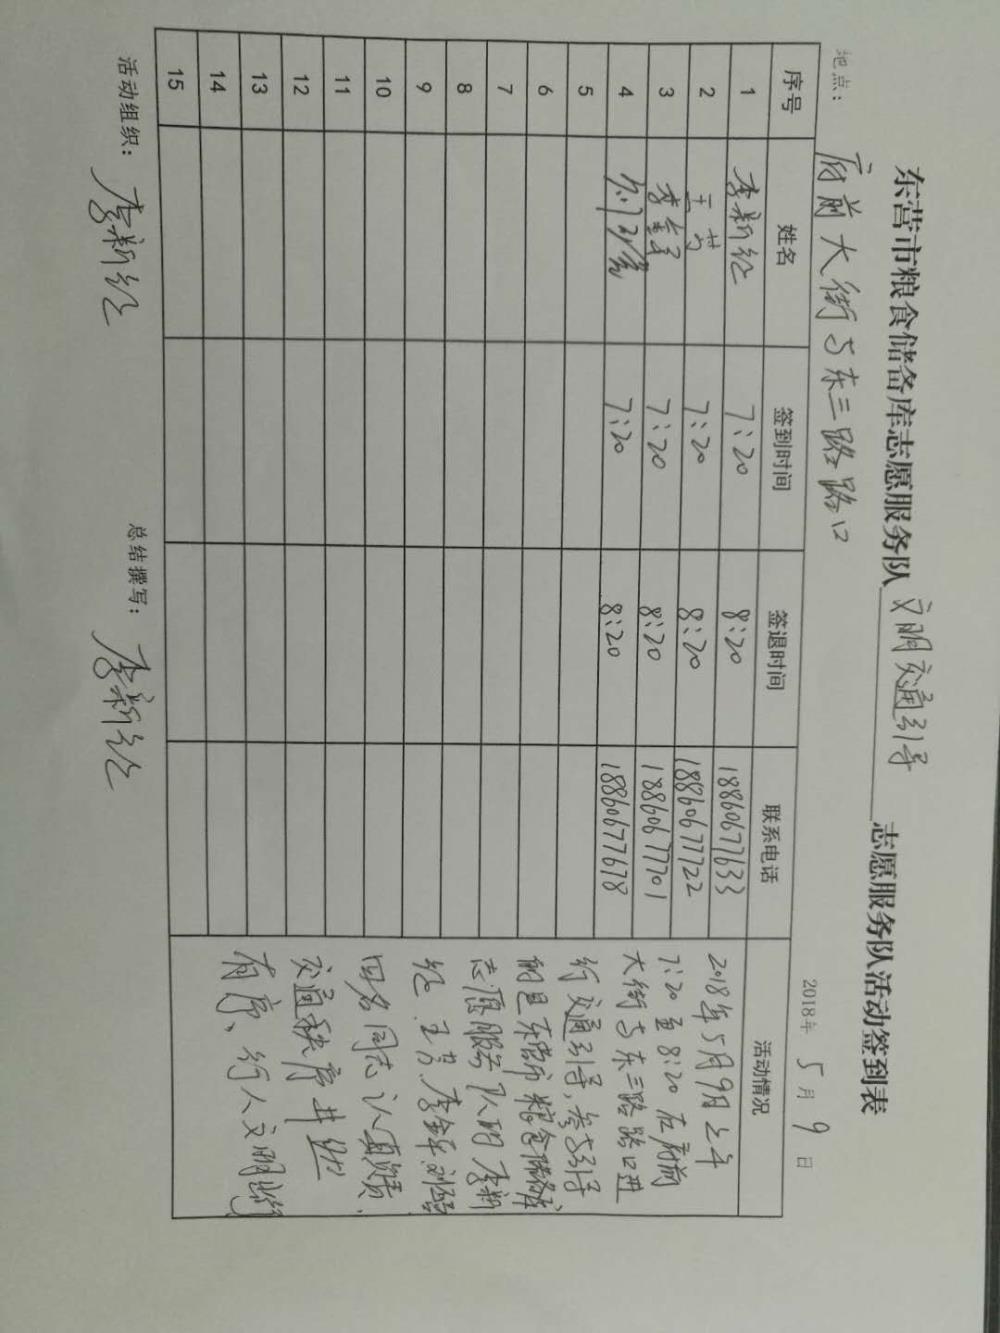 东营市粮食储备库志愿服务队 文明交通引导 志愿服务队活动签到表
地点: 府前大街与东三路路口 2018年 5月 9日
序号 姓名 签到时间 签退时间 联系电话 活动情况
1 李新纪 7:20 8:20 18860677633
2 王芳 7:20 8:20 18860677722
3 7:20 8:20 18860677701
4 7:20 8:20 18860677678
5
6
7
8
9
10
11
12
13
14
15
2018年5月9日上午
7:20至8:20在府前
大街与东三路路口进
行交通引导,参与引导
的是东营市粮食储备库
志愿服务队的李新
纪.王芳.李
四名同志认真负责,
交通秩序井然
有序、行人文明出行
活动组织: 李新纪 总结撰写: 李新纪